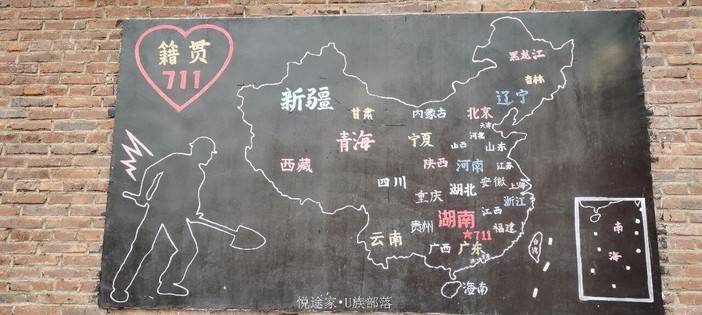 籍贯
711
黑龙江
吉林
辽宁
新疆
甘肃
内蒙古
北京
天津
河北
青海
宁夏
山西
山东
西藏
陕西
河南
江苏
四川
重庆
湖北
安徽
上海
浙江
贵州
湖南
江西
★711
福建
云南
广西
广东
台湾
海南
南
海
悦途家•U族部落